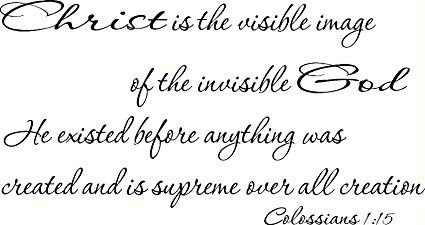 Christ is the visible image
of the invisible God
He existed before anything was
created and is supreme over all creation
Colossians 1:15